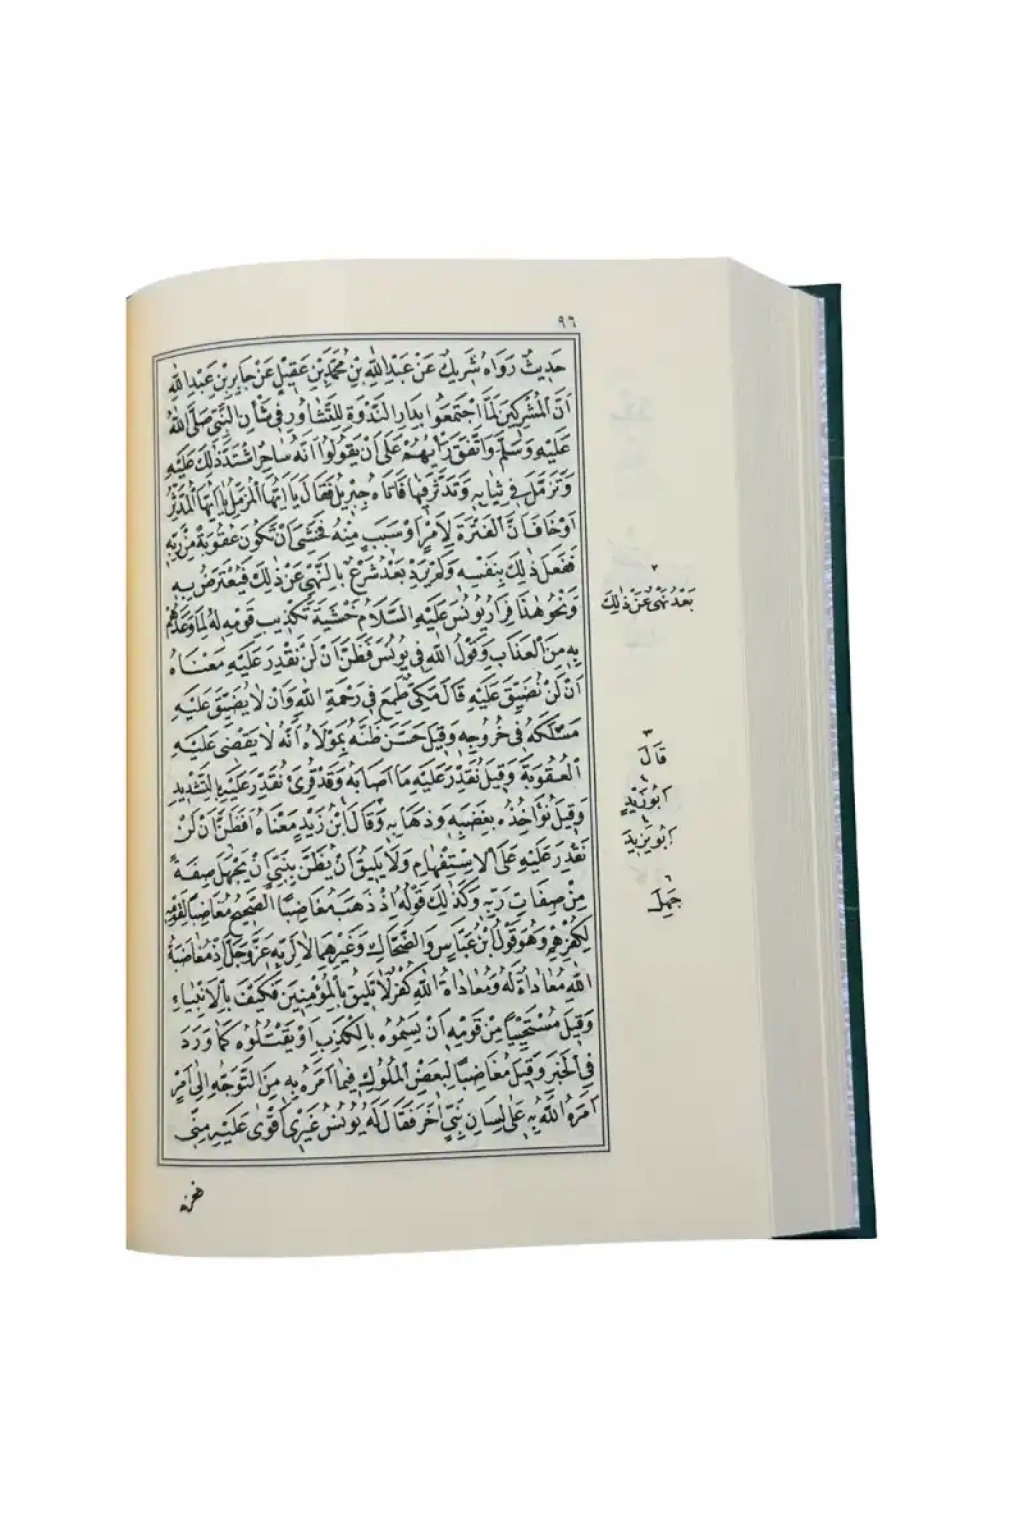 ٩٦
حَدِيثٌ رَوَاهُ شَرِيكٌ عَنْ عَبْدِ اللّٰهِ بْنِ مُحَمَّدِ بْنِ عَقِيلٍ عَنْ جَابِرِ بْنِ عَبْدِ اللّٰهِ
اَنَّ الْمُشْرِكِينَ لَمَّا اجْتَمَعُوا بِدَارِ النَّدْوَةِ لِلتَّشَاوُرِ فِي شَأْنِ النَّبِيِّ صَلَّى اللّٰهُ
عَلَيْهِ وَسَلَّمَ وَاتَّفَقَ رَأْيُهُمْ عَلَى اَنْ يَقُولُوا اَنَّهُ سَاحِرٌ اشْتَدَّ ذٰلِكَ عَلَيْهِ
وَتَزَمَّلَ فِي ثِيَابِهِ وَتَدَثَّرَ فِيهَا فَاَتَاهُ جِبْرِيلُ فَقَالَ يَا اَيُّهَا الْمُزَّمِّلُ يَا اَيُّهَا الْمُدَّثِّرُ
اَوْ خَافَ اَنَّ الْفَتْرَةَ لِاَمْرٍ اَوْ سَبَبٍ مِنْهُ فَخَشِيَ اَنْ تَكُونَ عُقُوبَةً مِنْ رَبِّهِ
فَفَعَلَ ذٰلِكَ بِنَفْسِهِ وَلَمْ يَرِدْ بَعْدُ شَرْعٌ بِالنَّهْيِ عَنْ ذٰلِكَ فَيُعْتَرَضُ بِهِ
وَنَحْوُ هٰذَا فِرَارُ يُونُسَ عَلَيْهِ السَّلَامُ خَشْيَةَ تَكْذِيبِ قَوْمِهِ لَهُ لِمَا وَعَدَهُمْ
بِهِ مِنَ الْعَذَابِ وَقَوْلُ اللّٰهِ فِي يُونُسَ فَظَنَّ اَنْ لَنْ نَقْدِرَ عَلَيْهِ مَعْنَاهُ
اَنْ لَنْ نُضَيِّقَ عَلَيْهِ قَالَ مَكِّيٌّ طَمِعَ فِي رَحْمَةِ اللّٰهِ وَاَنْ لَا يُضَيِّقَ عَلَيْهِ
مَسْلَكَهُ فِي خُرُوجِهِ وَقِيلَ حَسَّنَ ظَنَّهُ بِمَوْلَاهُ اَنَّهُ لَا يَقْضِي عَلَيْهِ
الْعُقُوبَةَ وَقِيلَ نُقَدِّرَ عَلَيْهِ مَا اَصَابَهُ وَقَدْ قُرِئَ نُقَدِّرَ عَلَيْهِ بِالتَّشْدِيدِ
وَقِيلَ نُؤَاخِذُهُ بِغَضَبِهِ وَذَهَابِهِ وَقَالَ ابْنُ زَيْدٍ مَعْنَاهُ اَفَظَنَّ اَنْ لَنْ
نَقْدِرَ عَلَيْهِ عَلَى الْاِسْتِفْهَامِ وَلَا يَلِيقُ اَنْ يُظَنَّ بِنَبِيٍّ اَنْ يَجْهَلَ صِفَةً
مِنْ صِفَاتِ رَبِّهِ وَكَذٰلِكَ قَوْلُهُ اِذْ ذَهَبَ مُغَاضِبًا الصَّحِيحُ مُغَاضِبًا لِقَوْمِهِ
لِكُفْرِهِمْ وَهُوَ قَوْلُ ابْنِ عَبَّاسٍ وَالضَّحَّاكِ وَغَيْرِهِمَا لَا لِرَبِّهِ عَزَّ وَجَلَّ اِذْ مُغَاضَبَةُ
اللّٰهِ مُعَادَاةٌ لَهُ وَمُعَادَاةُ اللّٰهِ كُفْرٌ لَا تَلِيقُ بِالْمُؤْمِنِينَ فَكَيْفَ بِالْاَنْبِيَاءِ
وَقِيلَ مُسْتَحْيِيًا مِنْ قَوْمِهِ اَنْ يَسِمُوهُ بِالْكَذِبِ اَوْ يَقْتُلُوهُ كَمَا وَرَدَ
فِي الْخَبَرِ وَقِيلَ مُغَاضِبًا لِبَعْضِ الْمُلُوكِ فِيمَا اَمَرَهُ بِهِ مِنَ التَّوَجُّهِ اِلَى اَمْرٍ
اَمَرَهُ اللّٰهُ بِهِ عَلَى لِسَانِ نَبِيٍّ اٰخَرَ فَقَالَ لَهُ يُونُسُ غَيْرِي اَقْوٰى عَلَيْهِ مِنِّي
٢
بَعْدُ نَهْيٌ عَنْ ذٰلِكَ
٣
قَالَ
اَبُو زَيْدٍ
اَبُو يَزِيدَ
٦
جَهِلَ